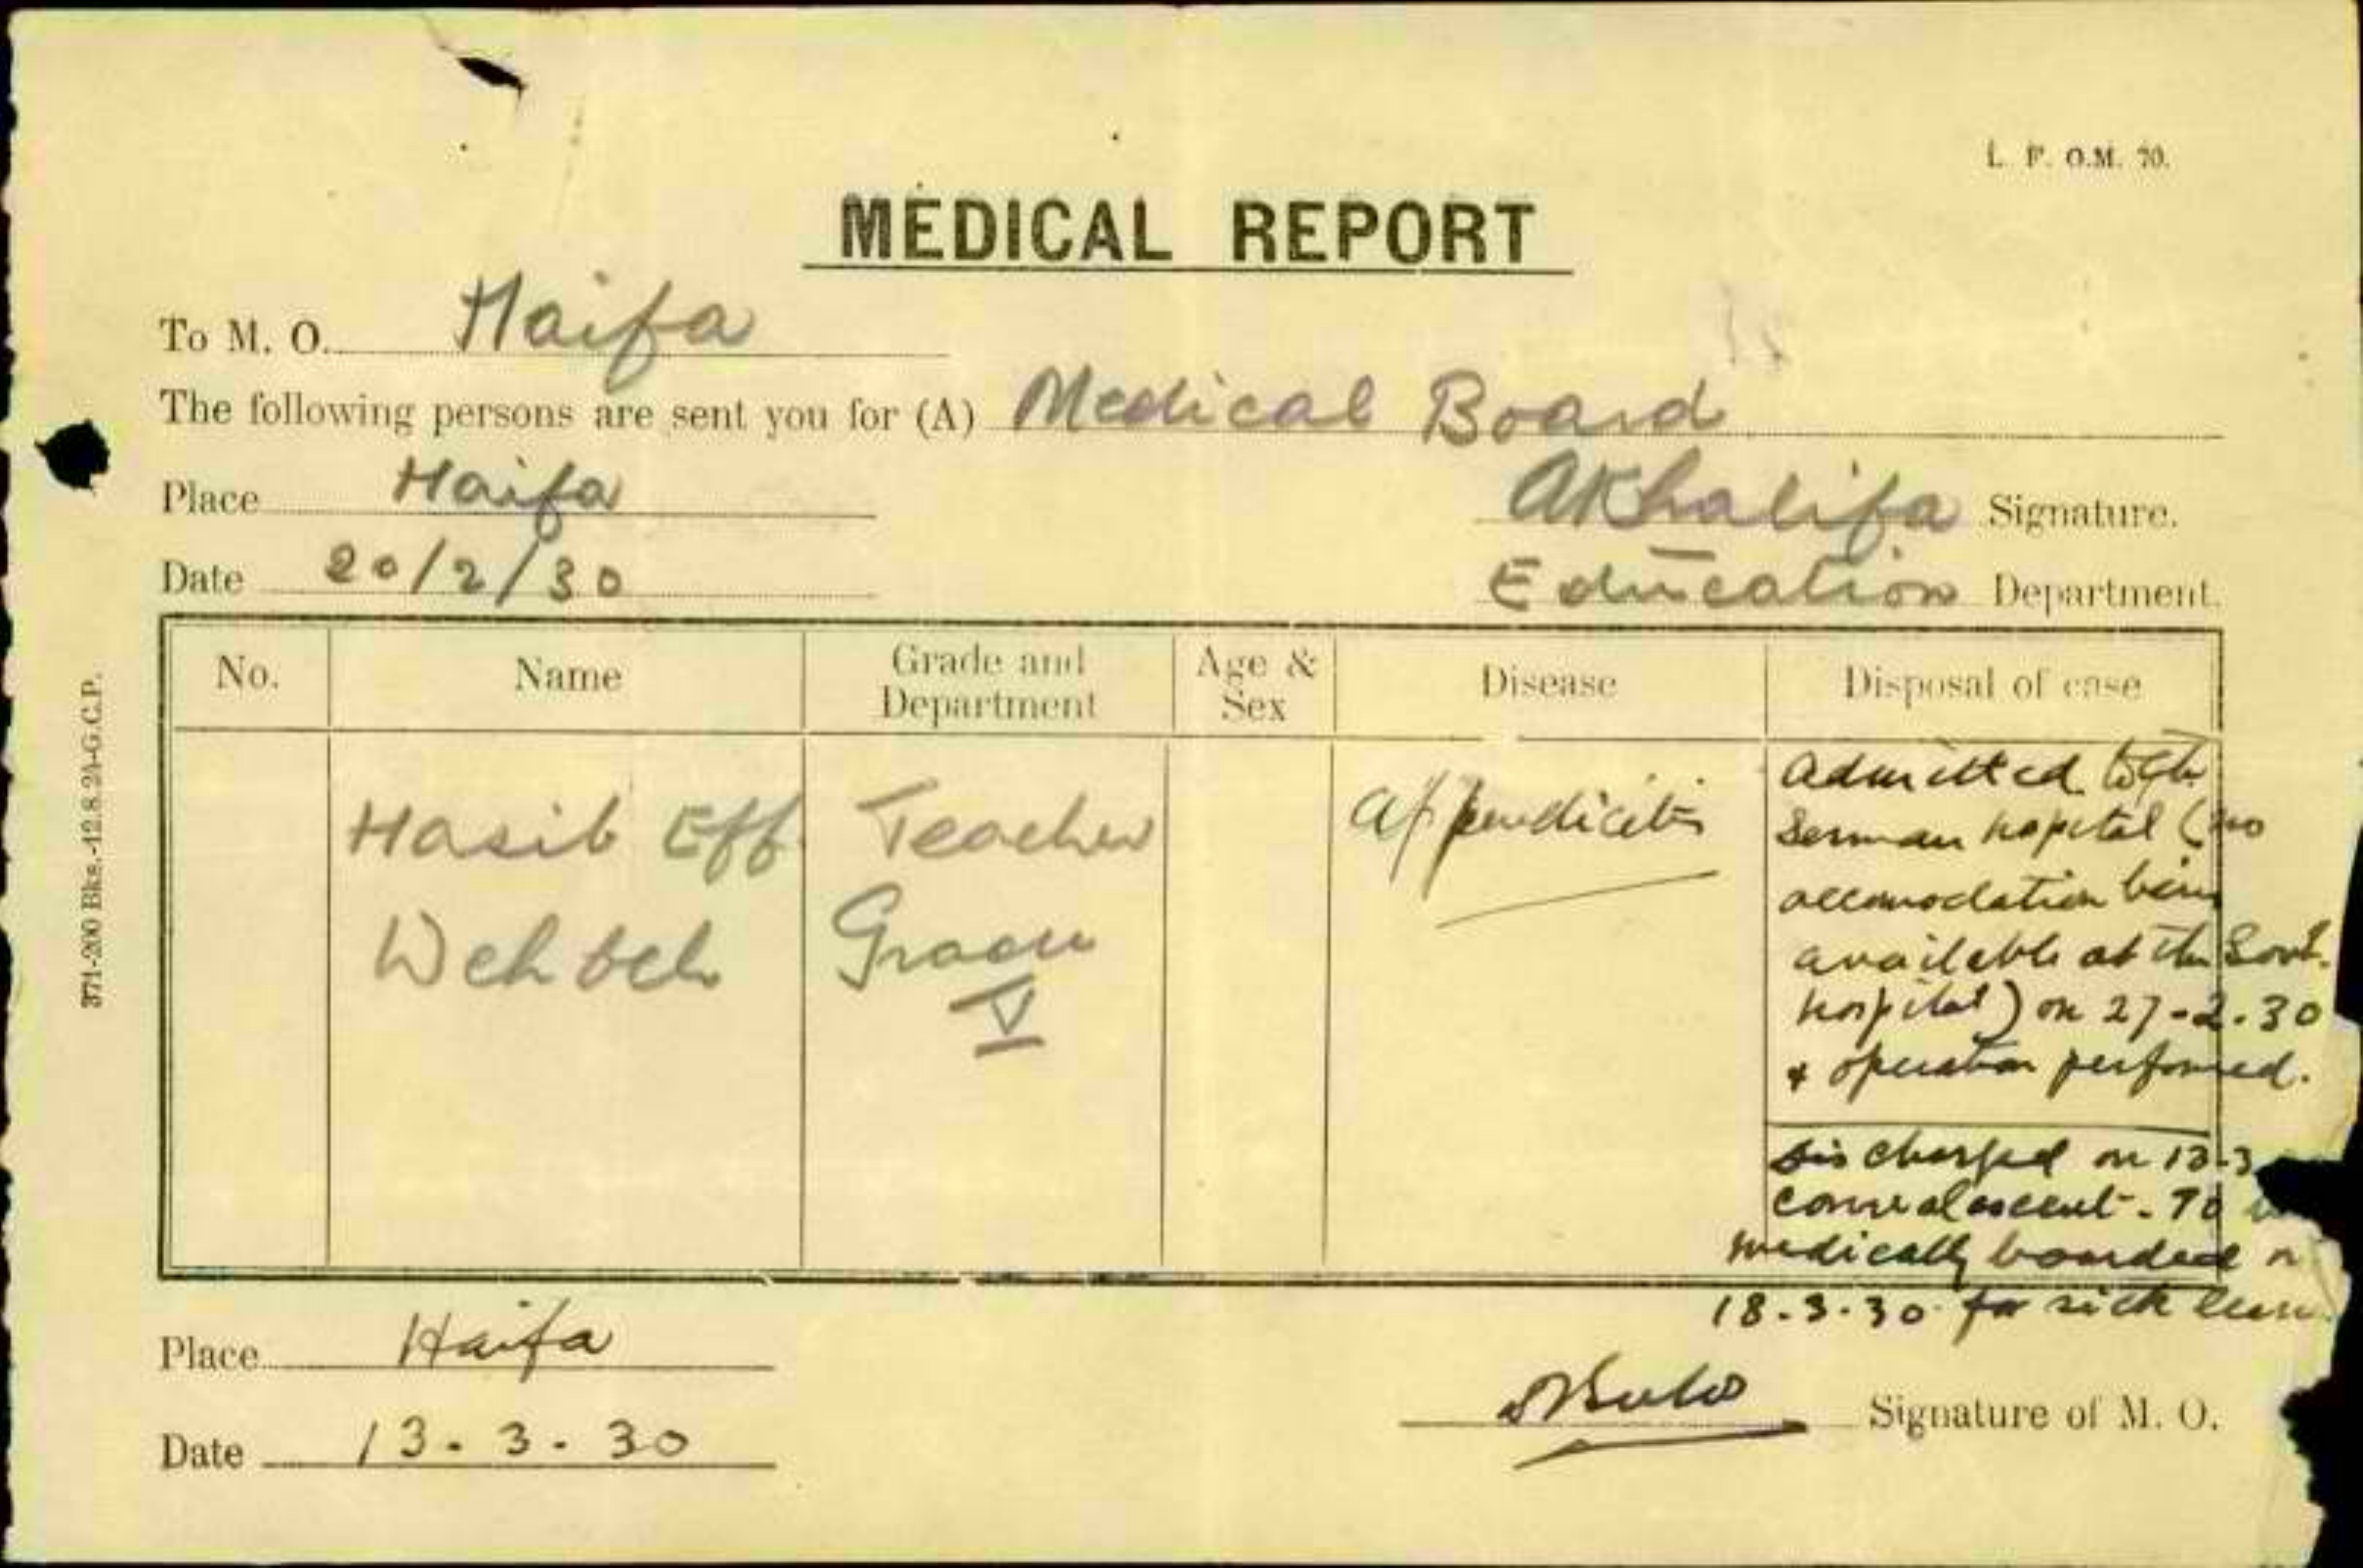 L. F. O.M. 70.
MEDICAL REPORT
To M. O. Haifa
The following persons are sent you for (A) Medical Board
Place Haifa
AKhalifa Signature.
Date 20/2/30
Education Department.
371-200 Bks.-12.8.24-G.C.P.
No. Name Grade and Department Age & Sex Disease Disposal of case
Hasib Eff. Teacher Appendicitis
Wehbeh Grade
V
Admitted to the
German hospital (no
accomodation being
available at the Govt.
hospital) on 27-2-30
& operation performed.
Discharged on 13-3
convalescent. To
medically boarded
18.3.30 for sick leave
Place Haifa
Signature of M. O.
Date 13.3.30